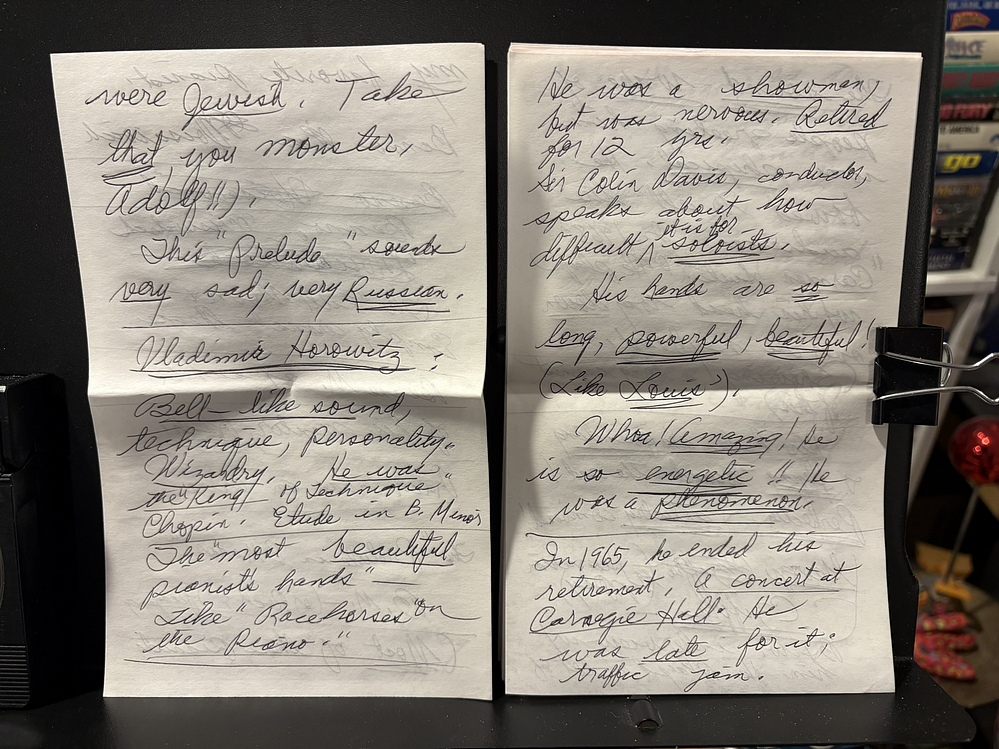 were Jewish. Take
that, you monster,
Adolf!!).
This "Prelude" sounds
very sad; very Russian.
Vladimir Horowitz:
Bell-like sound,
technique, personality.
Wizardry. He was
the "King of Technique"
Chopin. Etude in B. Minor
The "most beautiful
pianist's hands" —
Like "Racehorses on
the Piano."
He was a showman,
but was nervous. Retired
for 12 yrs.
Sir Colin Davis, conductor,
speaks about how
difficult it is for soloists.
His hands are so
long, powerful, beautiful!
(Like Louis').
Whoa! Amazing! He
is so energetic!! He
was a phenomenon.
In 1965, he ended his
retirement. A concert at
Carnegie Hall. He
was late for it;
traffic jam.
go